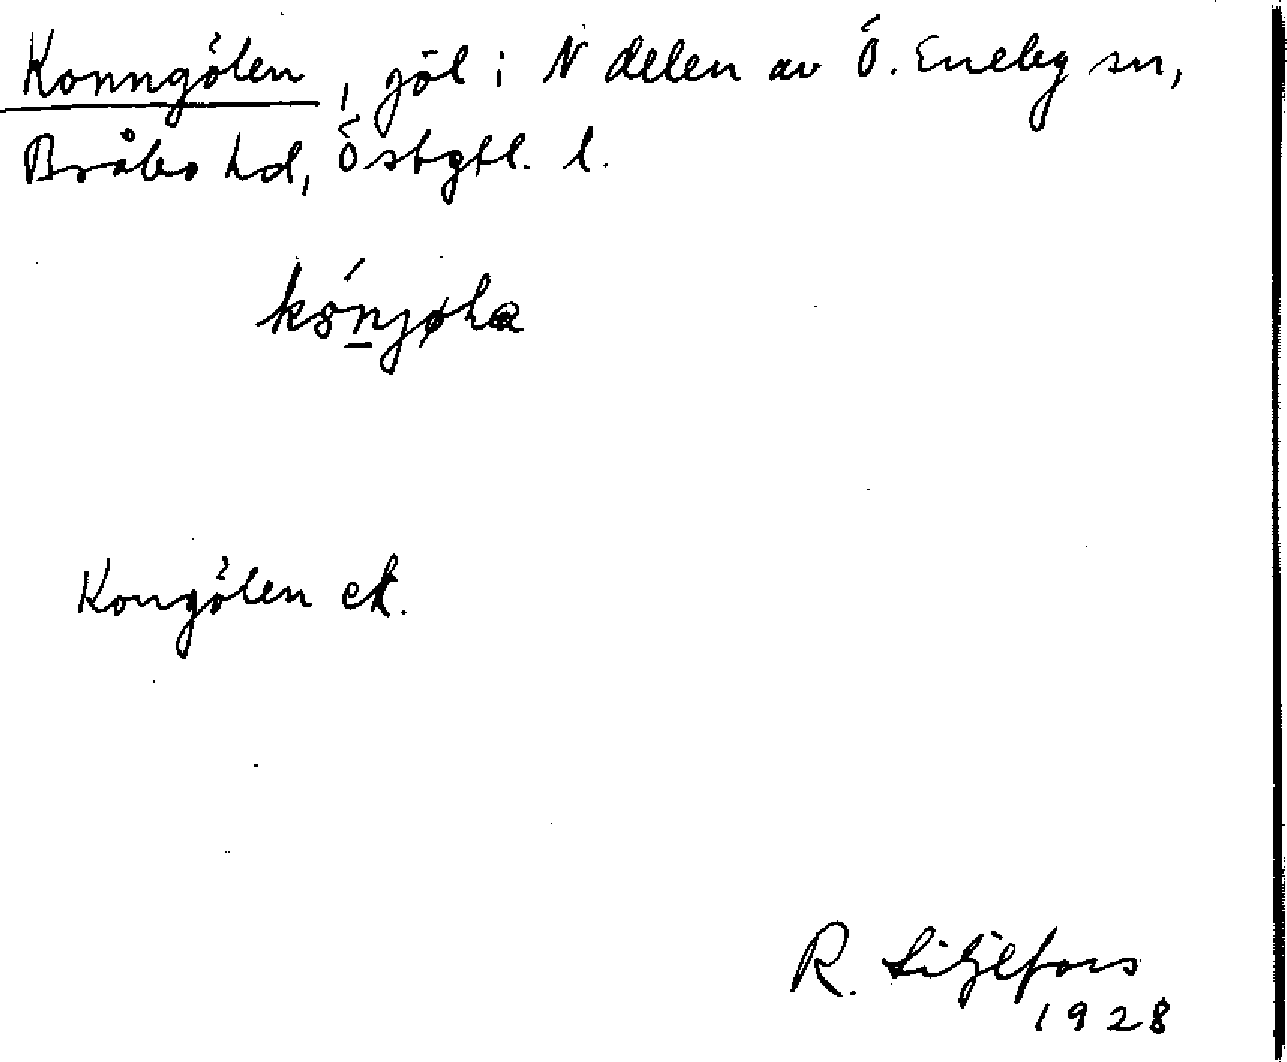 Konngölen, göl i N delen av Ö. Eneby sn,
Bråbo hd, Östgtl. l.
Kongölen ek.
R. Liljefors
1928